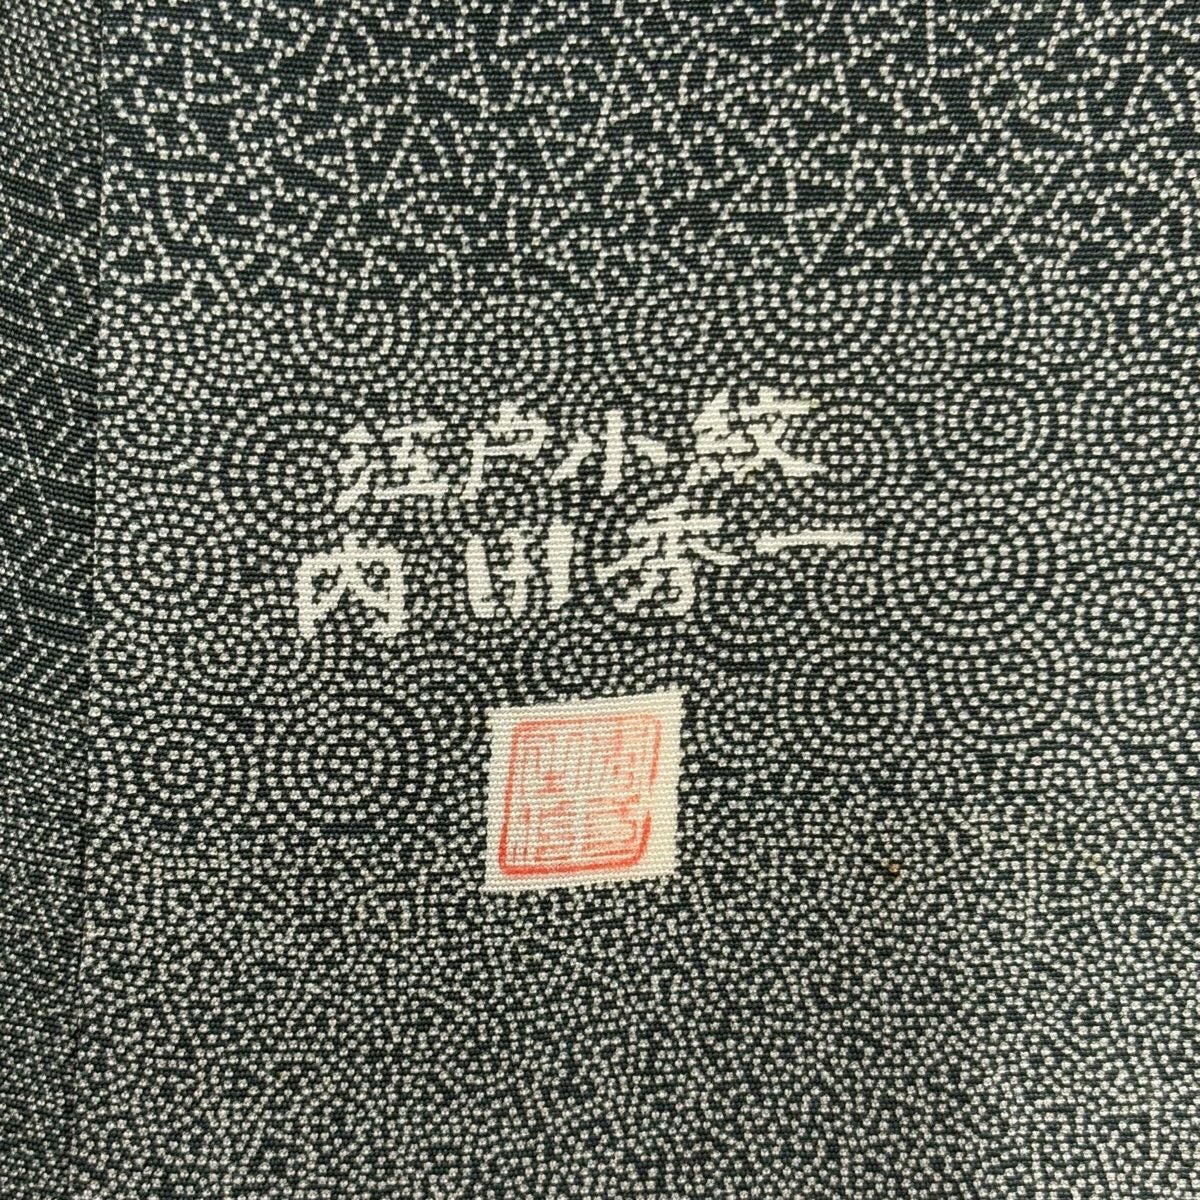 江戸小紋
内田秀一